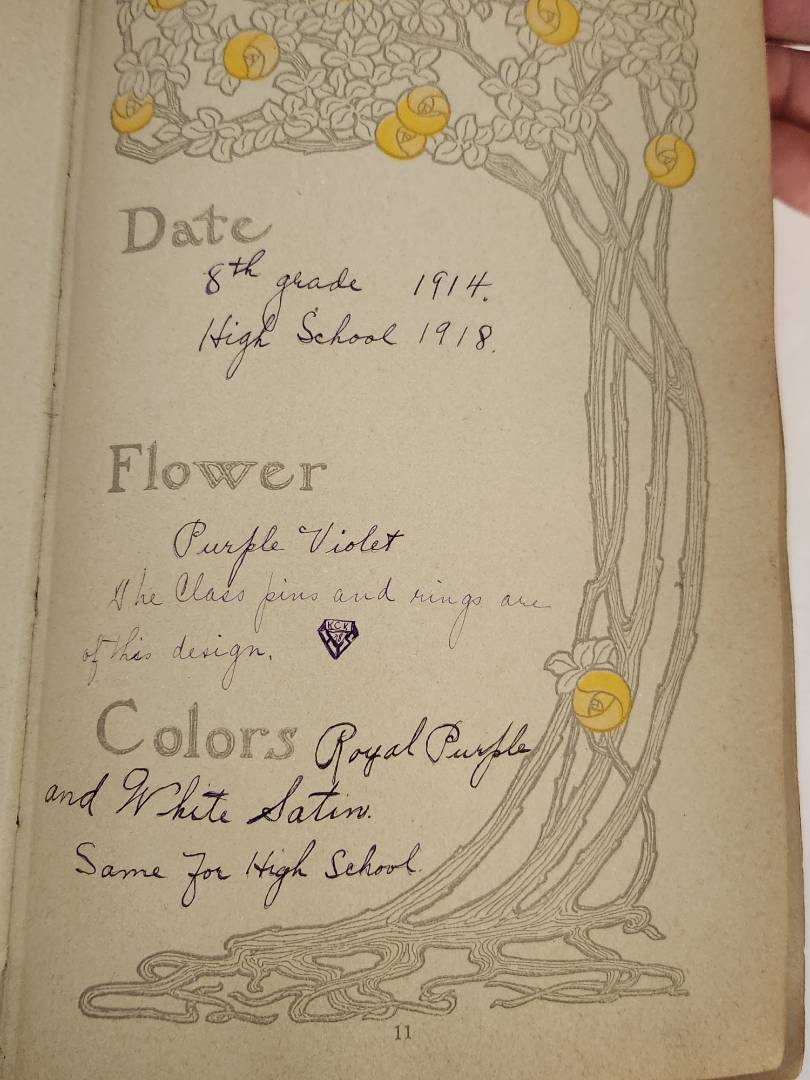 Date
8th grade 1914.
High School 1918.
Flower
Purple Violet
The Class pins and rings are
of this design. K.C.K.
Colors Royal Purple
and White Satin.
Same For High School.
11